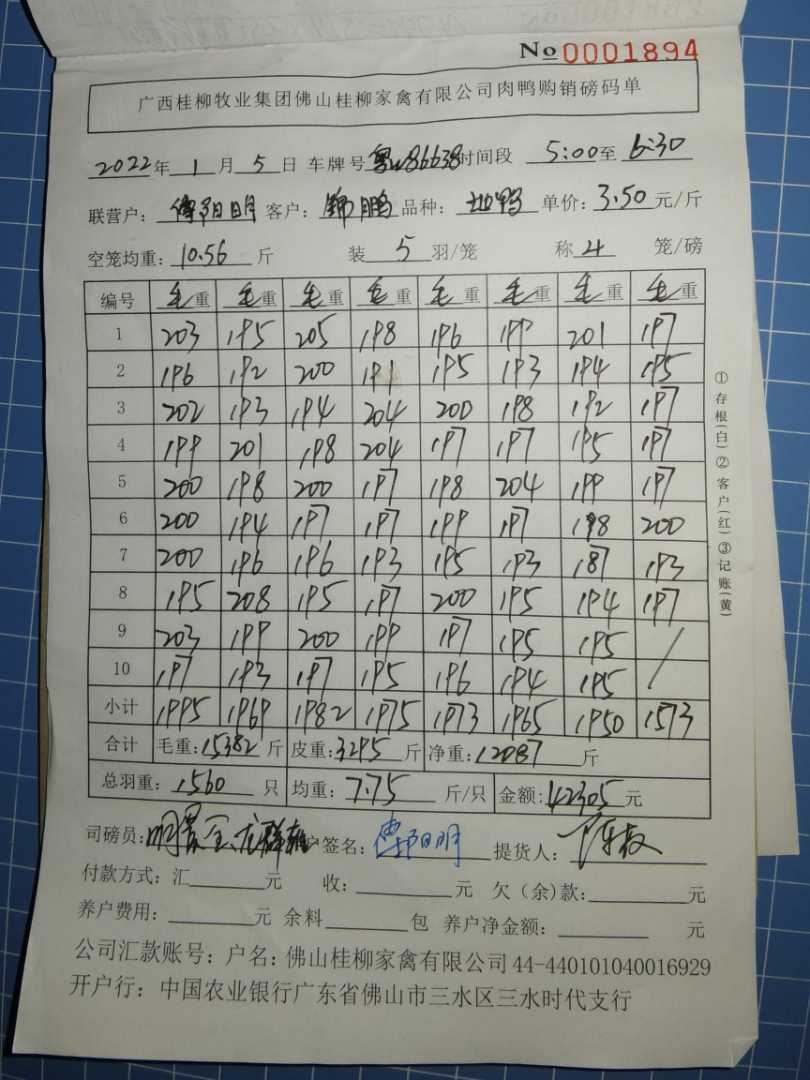 No 0001894
广西桂柳牧业集团佛山桂柳家禽有限公司肉鸭购销磅码单
2022年 1月 5日 车牌号粤W86638时间段 5:00至 6:30
联营户: 傅阳明 客户: 锦鹏 品种: 地鸭 单价: 3.50元/斤
空笼均重: 10.56 斤 装 5 羽/笼 称 4 笼/磅
编号 毛重 毛重 毛重 毛重 毛重 毛重 毛重 毛重
1 203 195 205 198 196 199 201 197
2 196 192 200 191 195 193 194 195
3 202 193 194 204 200 198 192 197
4 199 201 198 204 197 197 195 197
5 200 198 200 197 198 204 199 197
6 200 194 197 197 199 197 198 200
7 200 196 196 193 195 193 187 193
8 195 208 195 197 200 195 194 197
9 203 199 200 199 197 195 195 /
10 197 193 197 195 196 194 195 /
小计 1995 1969 1982 1975 1973 1965 1950 1573
合计 毛重:15382 斤 皮重:3295 斤 净重:12087 斤
总羽重: 1560 只 均重: 7.75 斤/只 金额: 42305 元
司磅员: 户签名: 傅阳明 提货人:
付款方式: 汇 元 收: 元 欠(余)款: 元
养户费用: 元 余料 包 养户净金额: 元
公司汇款账号: 户名: 佛山桂柳家禽有限公司 44-440101040016929
开户行: 中国农业银行广东省佛山市三水区三水时代支行
①存根(白)②客户(红)③记账(黄)